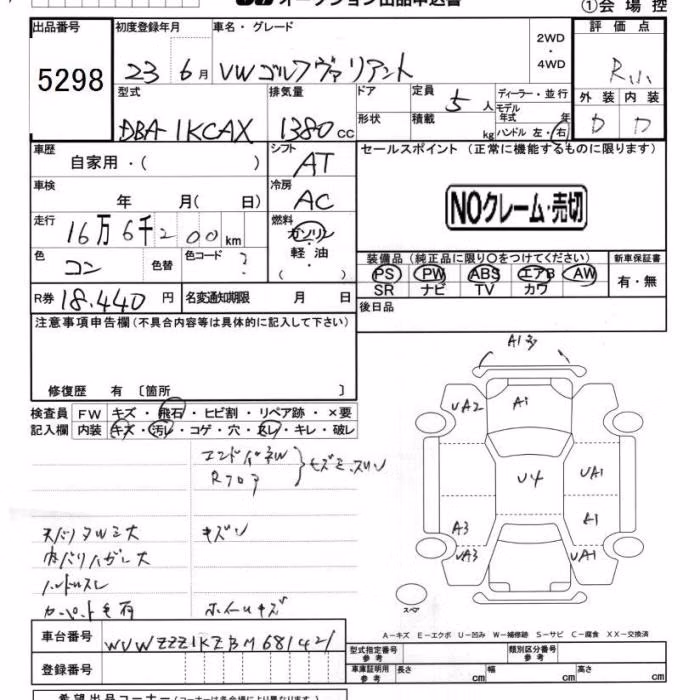 オークション出品申込書 ①会場控
出品番号 初度登録年月 車名・グレード 2WD・4WD 評価点
5298 23年6月 VWゴルフヴァリアント R小
型式 排気量 ドア 定員 ディーラー・並行 外装 内装
DBA-1KCAX 1380cc 形状 積載 kg 5人 モデル年式 年 ハンドル 左・右 D D
車歴 自家用・( ) シフト AT セールスポイント (正常に機能するものに限ります)
車検 年 月( 日) 冷房 AC NOクレーム・売切
走行 16万6千200km 燃料 ガソリン・軽油・( )
色 コン 色替 色コード ? 装備品 (純正品に限り○をつけてください) 新車保証書
PS PW ABS エアB AW 有・無
SR ナビ TV カワ
R券 18.440円 名変通知期限 月 日 後日品
注意事項申告欄(不具合内容等は具体的に記入して下さい)
修復歴 有〔箇所 〕
検査員記入欄 FW キズ・飛石・ヒビ割・リペア跡・×要
内装 キズ・汚レ・コゲ・穴・スレ・キレ・破レ
Rフロア
天バリタルミ大 キズ
内バリハガレ大
ハンドルスレ
カーペット毛有 ホイールキズ
A13
UA2 A1
U4 UA1
A3 A1
UA3 UA1
スペア
A-キズ E-エクボ U-凹み W-補修跡 S-サビ C-腐食 XX-交換済
車台番号 WVWZZZ1KZBM681421
登録番号
型式指定番号 参考 類別区分番号 参考
車庫証明用 参考 長さ cm 幅 cm 高さ cm
希望出品コーナー(コーナーは各会場により異なります)